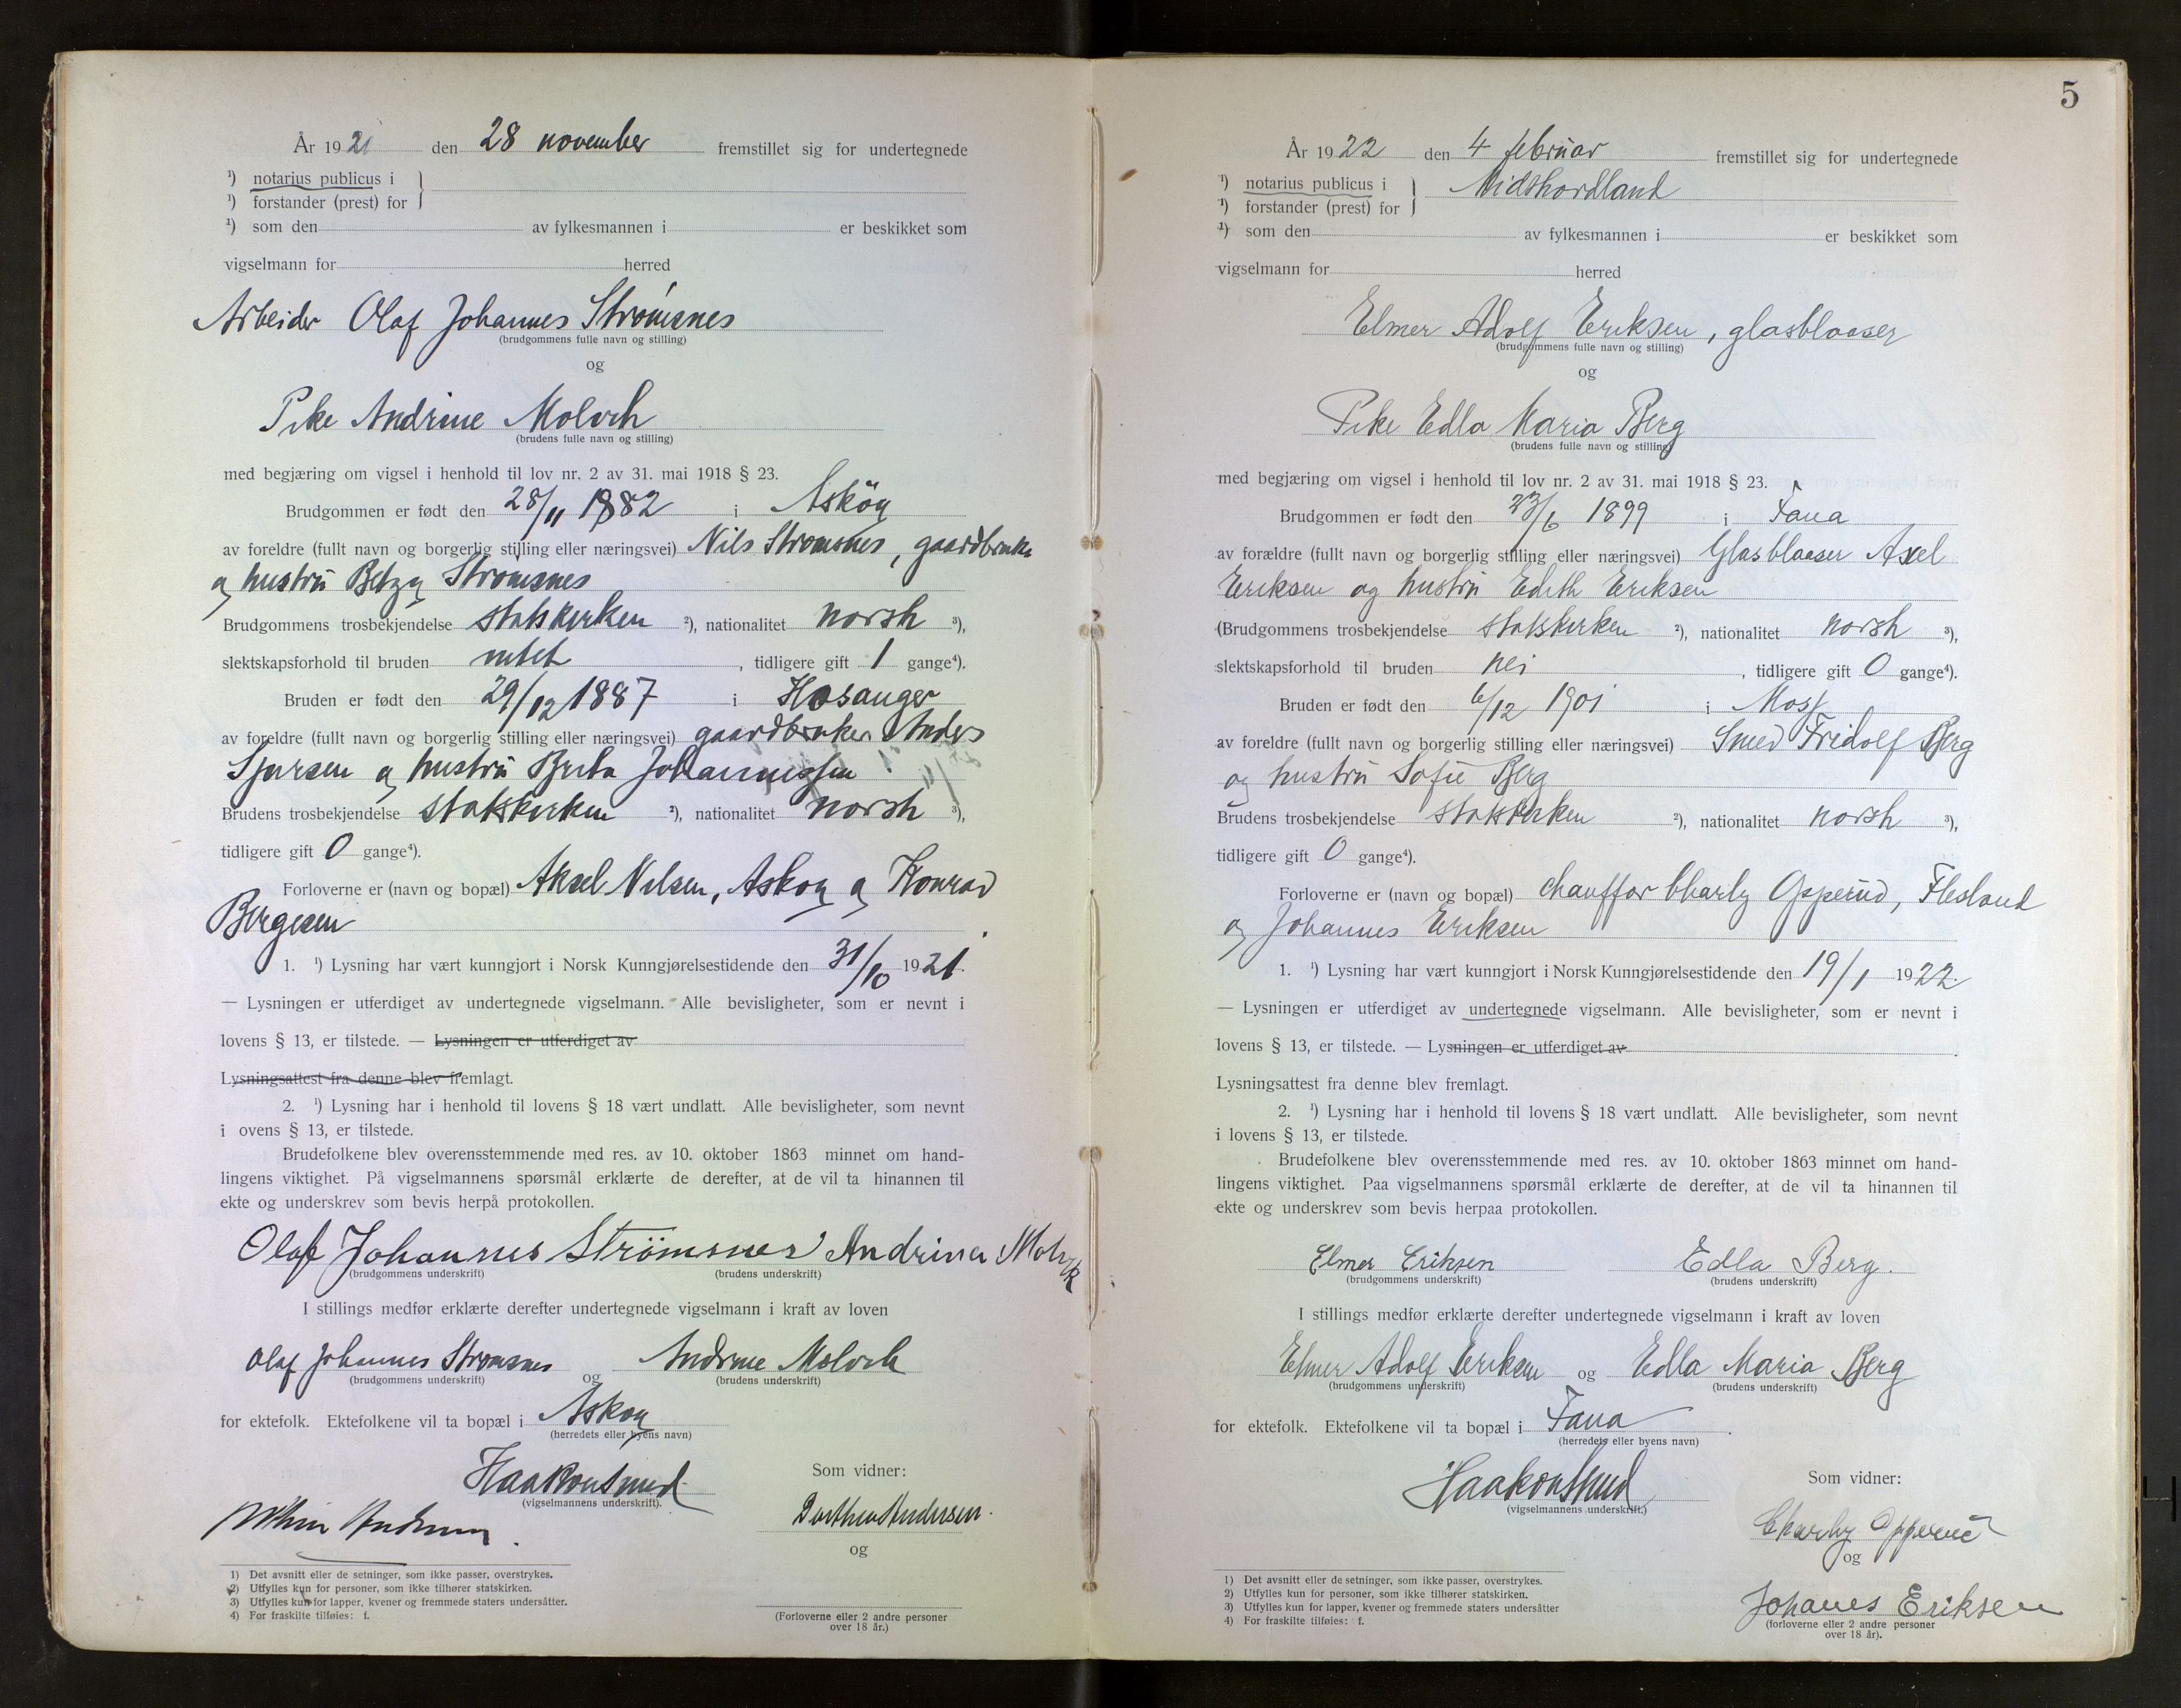 År 1921 den 28 november fremstillet sig for undertegnede
¹) notarius publicus i
¹) forstander (prest) for
¹) som den av fylkesmannen i er beskikket som
vigselmann for herred
Arbeider Olaf Johannes Strømsnes
(brudgommens fulle navn og stilling)
og
Pike Andrine Molvik
(brudens fulle navn og stilling)
med begjæring om vigsel i henhold til lov nr. 2 av 31. mai 1918 § 23.
Brudgommen er født den 28/11 1882 i Askøy
av foreldre (fullt navn og borgerlig stilling eller næringsvei) Nils Strømsnes, gaardbruker
og hustru Betzy Strømsnes
Brudgommens trosbekjendelse statskirken ²), nationalitet norsk ³),
slektskapsforhold til bruden intet, tidligere gift 1 gange⁴).
Bruden er født den 29/12 1887 i Hosanger
av foreldre (fullt navn og borgerlig stilling eller næringsvei) gaardbruker Anders
Sjursen og hustru Brita Johannessen
Brudens trosbekjendelse statskirken ²), nationalitet norsk ³),
tidligere gift 0 gange⁴).
Forloverne er (navn og bopæl) Aksel Nilsen, Askøy og Konrad
Birgesen
1. ¹) Lysning har vært kunngjort i Norsk Kunngjørelsestidende den 31/10 1921.
— Lysningen er utferdiget av undertegnede vigselmann. Alle bevisligheter, som er nevnt i
lovens § 13, er tilstede. — Lysningen er utferdiget av
Lysningsattest fra denne blev fremlagt.
2. ¹) Lysning har i henhold til lovens § 18 vært undlatt. Alle bevisligheter, som nevnt
i ovens § 13, er tilstede.
Brudefolkene blev overensstemmende med res. av 10. oktober 1863 minnet om hand-
lingens viktighet. På vigselmannens spørsmål erklærte de derefter, at de vil ta hinannen til
ekte og underskrev som bevis herpå protokollen.
Olaf Johannes Strömsnes Andrina Molvik
(brudgommens underskrift) (brudens underskrift)
I stillings medfør erklærte derefter undertegnede vigselmann i kraft av loven
Olaf Johannes Strømsnes og Andrine Molvik
(brudgommens underskrift) (brudens underskrift)
for ektefolk. Ektefolkene vil ta bopæl i Askøy
(herredets eller byens navn)
Haakonsund
(vigselmannens underskrift).
Som vidner:
Dorthea Andersen.
og
(Forloverne eller 2 andre personer
over 18 år.)
1) Det avsnitt eller de setninger, som ikke passer, overstrykes.
2) Utfylles kun for personer, som ikke tilhører statskirken.
3) Utfylles kun for lapper, kvener og fremmede staters undersåtter.
4) For fraskilte tilføies: f.
5
År 1922 den 4 februar fremstillet sig for undertegnede
¹) notarius publicus i Midthordland
¹) forstander (prest) for
¹) som den av fylkesmannen i er beskikket som
vigselmann for herred
Elmer Adolf Eriksen, glasblaaser
(brudgommens fulle navn og stilling)
og
Pike Edla Maria Berg
(brudens fulle navn og stilling)
med begjæring om vigsel i henhold til lov nr. 2 av 31. mai 1918 § 23.
Brudgommen er født den 23/6 1899 i Fana
av forældre (fullt navn og borgerlig stilling eller næringsvei) Glasblaaser Axel
Eriksen og hustru Edith Eriksen
(Brudgommens trosbekjendelse statskirken ²), nationalitet norsk ³),
slektskapsforhold til bruden nei, tidligere gift 0 gange⁴).
Bruden er født den 6/12 1901 i Moss
av foreldre (fullt navn og borgerlig stilling eller næringsvei) Smed Fridolf Berg
og hustru Sofie Berg
Brudens trosbekjendelse statskirken ²), nationalitet norsk ³),
tidligere gift 0 gange⁴).
Forloverne er (navn og bopæl) chauffør Charly Opperud, Flesland
og Johannes Eriksen
1. ¹) Lysning har vært kunngjort i Norsk Kunngjørelsestidende den 19/1 1922.
— Lysningen er utferdiget av undertegnede vigselmann. Alle bevisligheter, som er nevnt i
lovens § 13, er tilstede. — Lysningen er utferdiget av
Lysningsattest fra denne blev fremlagt.
2. ¹) Lysning har i henhold til lovens § 18 vært undlatt. Alle bevisligheter, som nevnt
i lovens § 13, er tilstede.
Brudefolkene blev overensstemmende med res. av 10. oktober 1863 minnet om hand-
lingens viktighet. Paa vigselmannens spørsmål erklærte de derefter, at de vil ta hinannen til
ekte og underskrev som bevis herpaa protokollen.
Elmer Eriksen Edla Berg.
(brudgommens underskrift) (brudens underskrift)
I stillings medfør erklærte derefter undertegnede vigselmann i kraft av loven
Elmer Adolf Eriksen og Edla Maria Berg
(brudgommens underskrift) (brudens underskrift)
for ektefolk. Ektefolkene vil ta bopæl i Fana.
(herredets eller byens navn)
Haakonsund
(vigselmannens underskrift.)
Som vidner:
Charly Opperud
og
Johanes Eriksen
(forloverne eller 2 andre personer
over 18 år).
1) Det avsnitt eller de setninger, som ikke passer, overstrykes.
2) Utfylles kun for personer, som ikke tilhører statskirken.
3) Utfylles kun for lapper, kvener og fremmede staters undersåtter
4) For fraskilte tilføies: f.